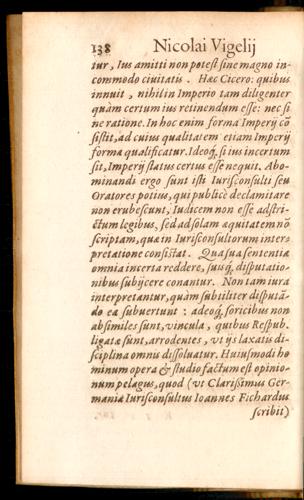 138 Nicolai Vigelij
tur, Ius amitti non potest sine magno in-
commodo ciuitatis. Hæc Cicero: quibus
innuit, nihil in Imperio tam diligenter
quàm certum ius retinendum esse: nec si
ne ratione. In hoc enim forma Imperij cõ
sistit, ad cuius qualitatem etiam Imperij
forma qualificatur. Ideoq́, si ius incertum
sit, Imperij status certus esse nequit. Abo-
minandi ergo sunt isti Iurisconsulti seu
Oratores potius, qui publicè declamitare
non erubescunt, Iudicem non esse adstri-
ctum legibus, sed ad solam æquitatem nõ
scriptam, quæ in Iurisconsultorum inter-
pretatione consistat. Qua sua sententia
omnia incerta reddere, suisq́, disputatio-
nibus subijcere conantur. Non tam iura
interpretantur, quàm subtiliter disputã-
do ea subuertunt: adeoq́, soricibus non
absimiles sunt, vincula, quibus Respub.
ligatæ sunt, arrodentes, vt ijs laxatis di-
sciplina omnis dissoluatur. Huiusmodi ho
minum opera & studio factum est opinio-
num pelagus, quod (vt Clarissimus Ger-
maniæ Iurisconsultus Ioannes Fichardus
scribit)